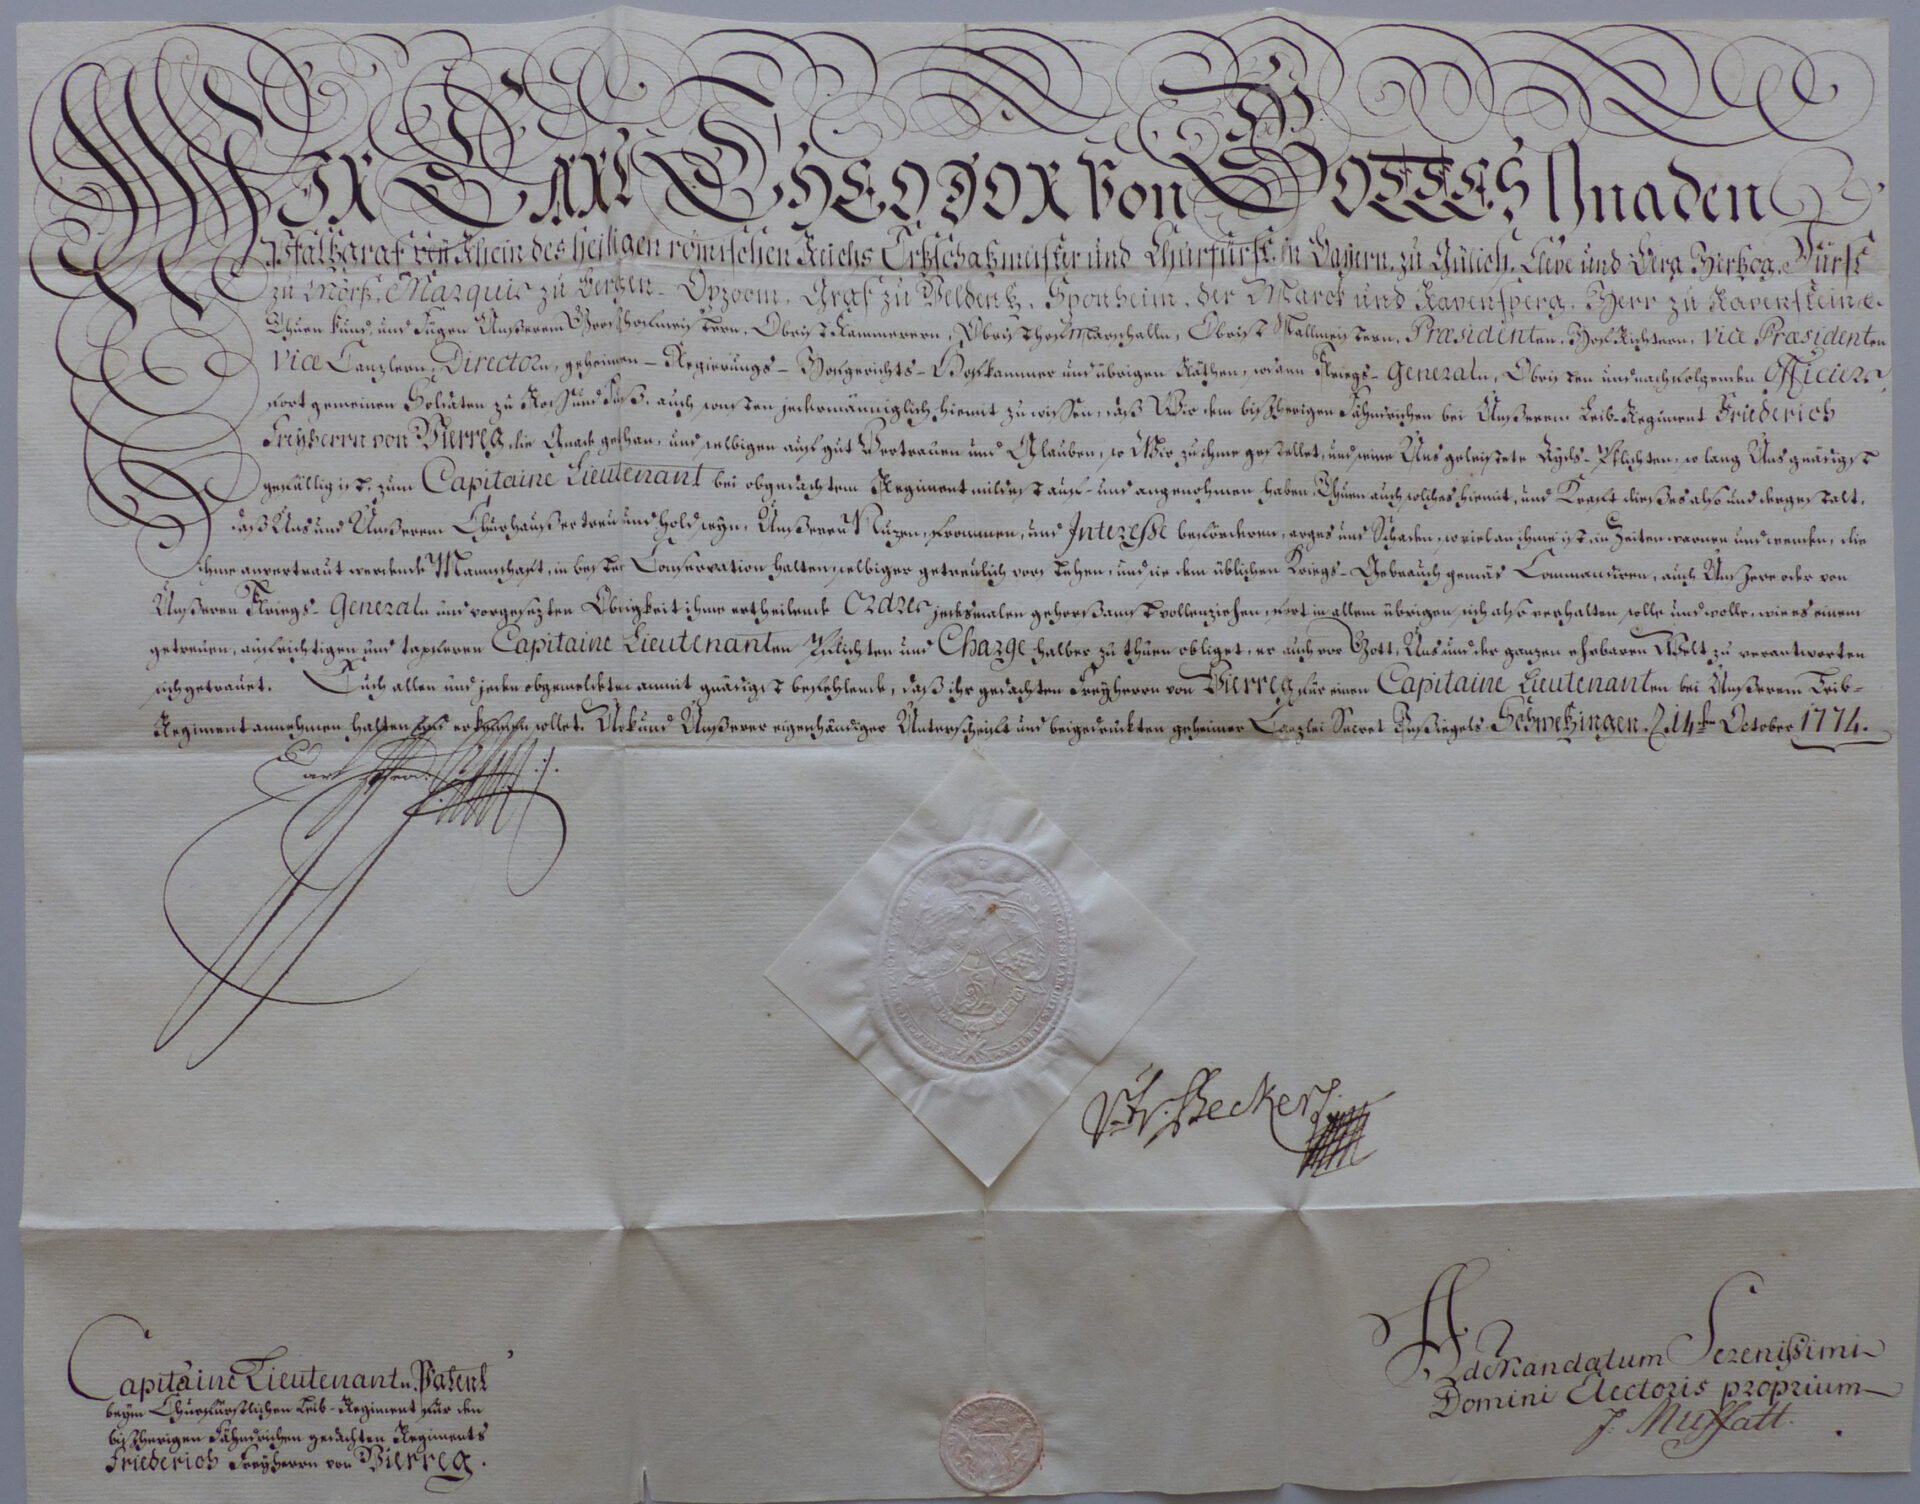 WIR CARL THEODOR Von GOTTES Gnaden
Pfaltzgraf von Rhein des heiligen römischen Reichs Ertzschatzmeister und Churfürst, in Bayern, zu Gülich, Cleve und Berg Hertzog, Fürst
zu Mörß, Marquis zu Bergen-Opzoom, Graf zu Veldentz, Sponheim, der Marck und Ravensperg, Herr zu Ravenstein &.
Thuen kund, und fügen Unßerem Großhofmeistern, Obrist Kammerern, Obrist Hof Marschalln, Obrist Stallmeistern, Præsidenten, Hof Richtern, Vice Præsidenten
Vice Canzlern, Directorn, geheimen- Regierungs- Hofgerichts- Hofkammer und übrigen Räthen, wie auch Kriegs-Generaln, Obristen und nachfolgenden Officiers,
fort gemeinen Soldaten zu Roß und Fuß, auch sonsten jedermänniglich hiemit zu wissen, daß Wir dem bißherigen Fähndrichen bei Unßerem Leib-Regiment Friederich
Freyherrn von Vierreg, die Gnade gethan, und selbigen auf gut Vertrauen und Glauben, so Wir zu ihme gestellet, und seine Uns geleistete Eyds-Pflichten, so lang Uns gnädigst
gefällig ist, zum Capitaine Lieutenant bei obgedachtem Regiment mildest auf- und angenohmen haben, Thuen auch solches hiemit, und Kraft dießes also und dergestalt,
daß Uns und Unßerem Churhauß er treu und hold seyn, Unßeren Nuzen, frommen, und Interesse beförderen, arges und Schaden, so viel an ihme ist, in Zeiten warnen und wenden, die
ihme anvertraut werdende Mannschaft, in bester Conservation halten, selbiger getreulich vorstehen, und sie dem üblichen Kriegs-Gebrauch gemäs Commandiren, auch Unßere oder von
Unßeren Kriegs-Generaln und vorgesezten Obrigkeit ihme ertheilende Ordres jedesmalen gehorsamst vollenziehen, fort in allem übrigen sich also verhalten solle und wolle, wie es einem
getreuen, aufrichtigen und tapferen Capitaine Lieutenanten Pflichten und Charge halber zu thuen obliget, er auch vor Gott, Uns und der ganzen ehrbaren Welt zu verantworten
sich getrauet. Euch allen und jeden obgemeldten anmit gnädigst befehlende, daß ihr gedachten Freyherrn von Vierreg für einen Capitaine Lieutenanten bei Unßerem Leib-
Regiment annehmen halten und erkennen sollet. Urkund Unßerer eigenhändiger Unterschrift und beigedruckten geheimer Canzlei Secret Insiegels Schwetzingen, d. 14ten October 1774.
Carl Theod.
Vt. Beckers
Capitaine Lieutenants Patent
beym Churfürstlichen Leib-Regiment für den
bißherigen Fähndrichen gedachten Regiments
Friederich Freyherrn von Vierreg.
Ad Mandatum Serenissimi
Domini Electoris proprium
J. Muffatt.